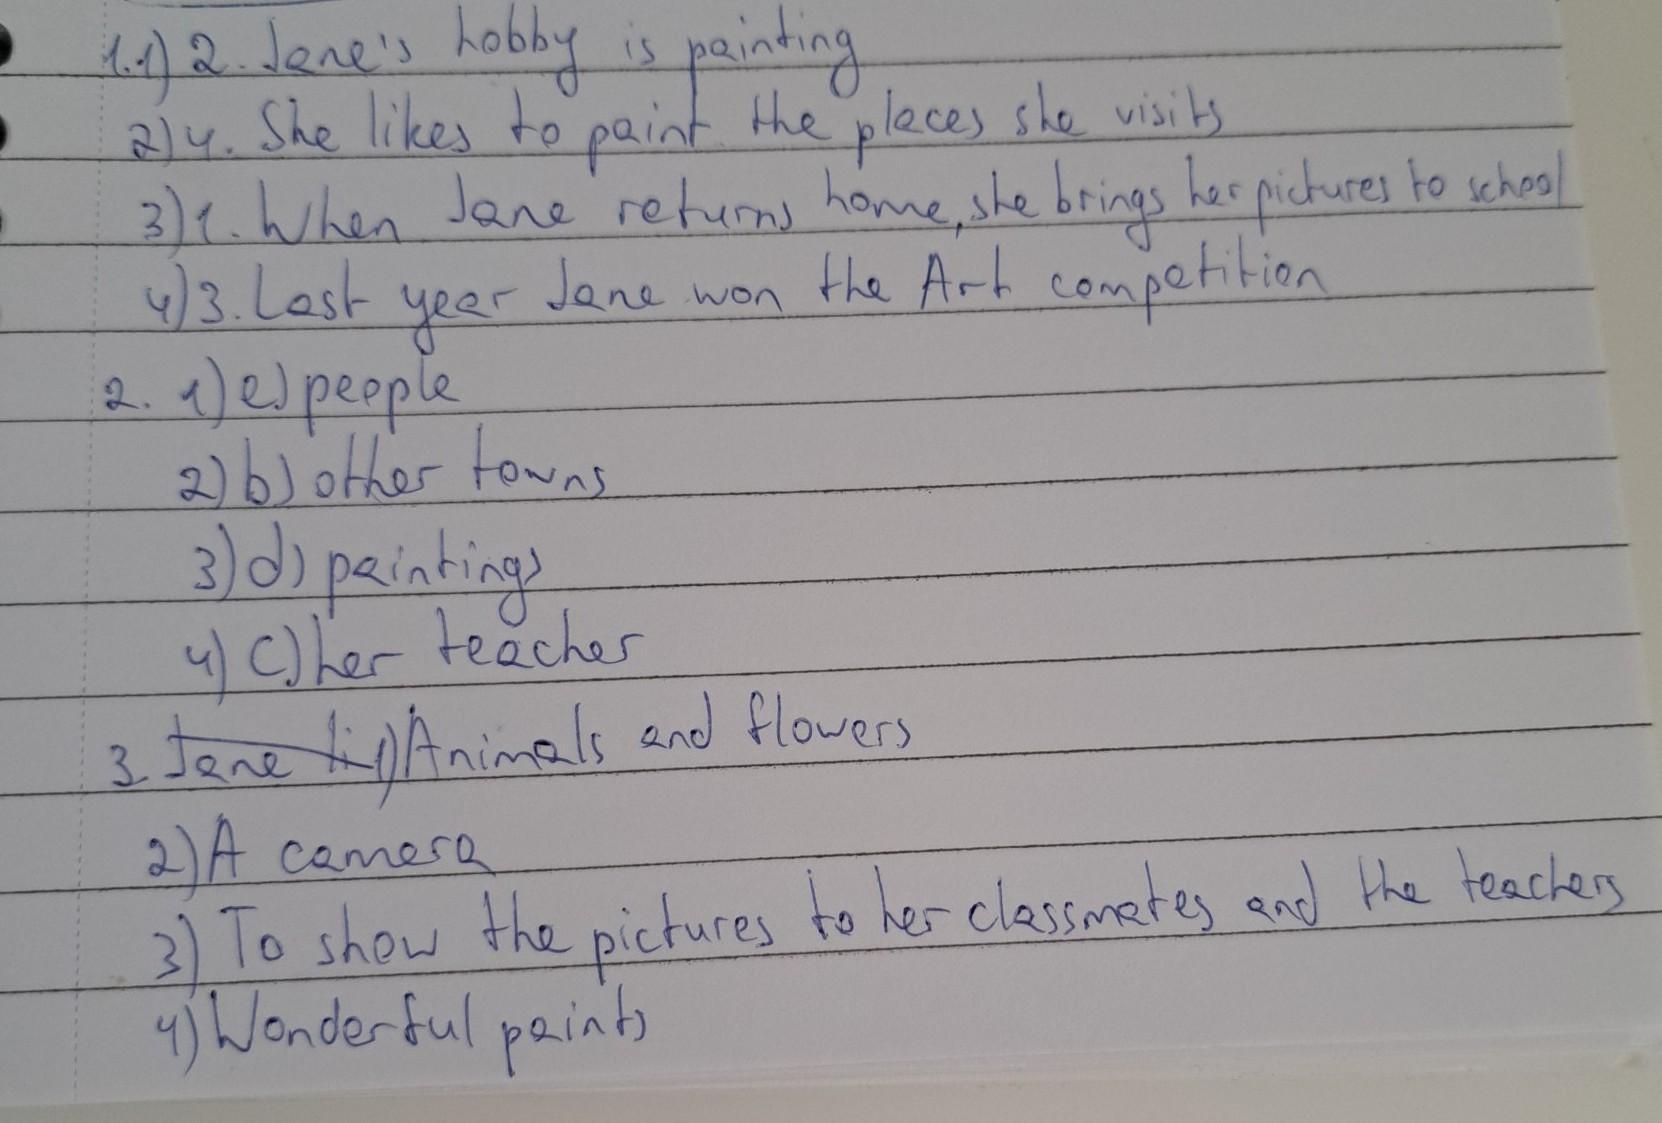 1.1) 2. Jane's hobby is painting
2) 4. She likes to paint the places she visits
3) 1. When Jane returns home, she brings her pictures to school
4) 3. Last year Jane won the Art competition
2. 1) e) people
2) b) other towns
3) d) paintings
4) c) her teacher
3. Jane li 1) Animals and flowers
2) A camera
3) To show the pictures to her classmates and the teachers
4) Wonderful paints